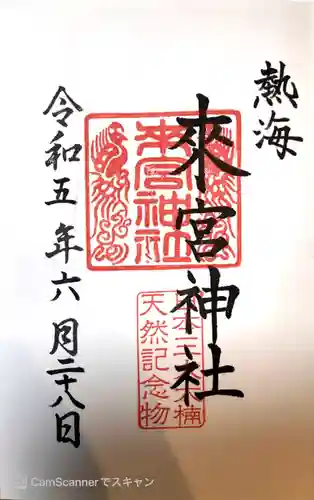 熱海
來宮神社
來宮神社
日本三大大楠
天然記念物
令和五年六月二十八日
CamScannerでスキャン